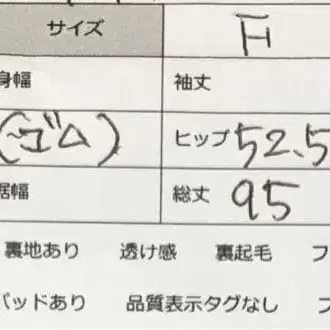 サイズ F
身幅 袖丈
(ゴム) ヒップ 52.5
裾幅 総丈 95
裏地あり 透け感 裏起毛 フ
パッドあり 品質表示タグなし フ